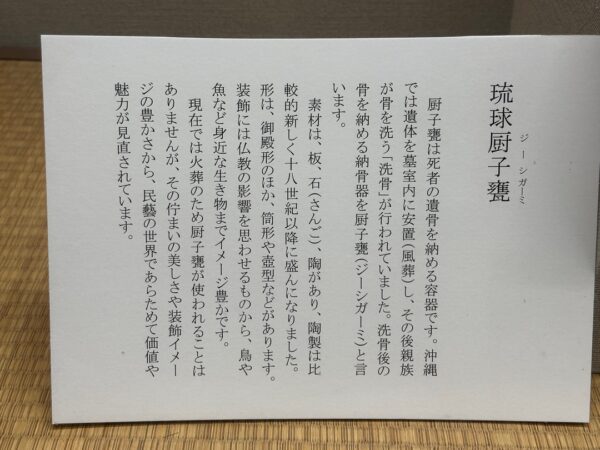 琉球厨子甕
ジーシガーミ
厨子甕は死者の遺骨を納める容器です。沖縄
では遺体を墓室内に安置（風葬）し、その後親族
が骨を洗う「洗骨」が行われていました。洗骨後の
骨を納める納骨器を厨子甕（ジーシガーミ）と言
います。
素材は、板、石（さんご）、陶があり、陶製は比
較的新しく十八世紀以降に盛んになりました。
形は、御殿形のほか、筒形や壺型などがあります。
装飾には仏教の影響を思わせるものから、鳥や
魚など身近な生き物までイメージ豊かです。
現在では火葬のため厨子甕が使われることは
ありませんが、その佇まいの美しさや装飾イメー
ジの豊かさから、民藝の世界であらためて価値や
魅力が見直されています。